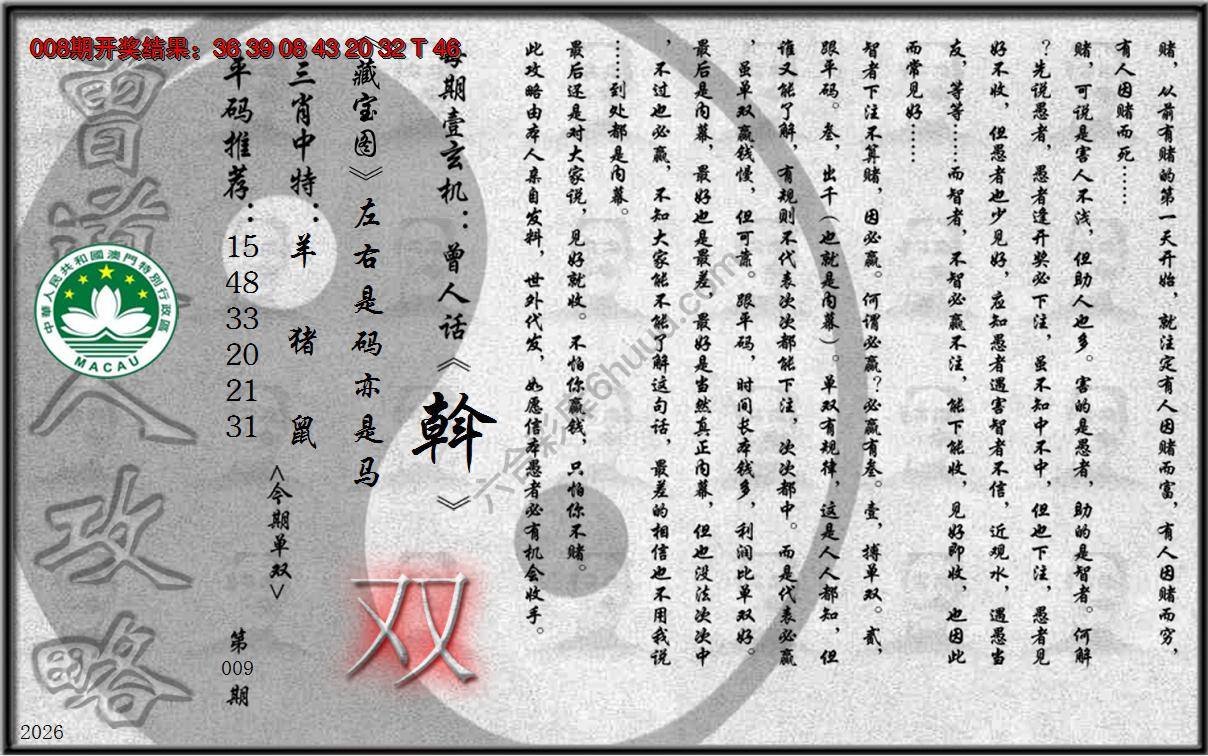 008期开奖结果：36 39 08 43 20 32 T 46
赌，从前有赌的第一天开始，就注定有人因赌而富，有人因赌而穷，
有人因赌而死……
赌，可说是害人不浅，但助人也多。害的是愚者，助的是智者。何解
？先说愚者，愚者逢开奖必下注，虽不知中不中，但也下注，愚者见
好不收，但愚者也少见好，应知愚者遇害智者不信，近观水，遇愚当
友，等等……而智者，不智必赢不注，能下能收，见好即收，也因此
而常见好……
智者下注不算赌，因必赢。何谓必赢？必赢有叁。壹，搏单双。贰，
跟平码。叁，出千（也就是内幕）。单双有规律，这是人人都知，但
谁又能了解，有规则不代表次次都能下注，次次都中。而是代表必赢
，虽单双赢钱慢，但可靠。跟平码，时间长本钱多，利润比单双好。
最后是内幕，最好也是最差，最好是当然真正内幕，但也没法次次中
，不过也必赢，不知大家能不能了解这句话，最差的相信也不用我说
……到处都是内幕。
最后还是对大家说，见好就收。不怕你赢钱，只怕你不赌。
此攻略由本人亲自发料，世外代发，如愿信本愚者必有机会收手。
每期壹玄机：曾人话《斡》
《藏宝图》左右是码亦是马
双
三肖中特：羊 猪 鼠
<今期单双>
平码推荐：15 48 33 20 21 31
第009期
曾道人攻略
中華人民共和國澳門特別行政區
MACAU
2026
六合彩库6huuu.com